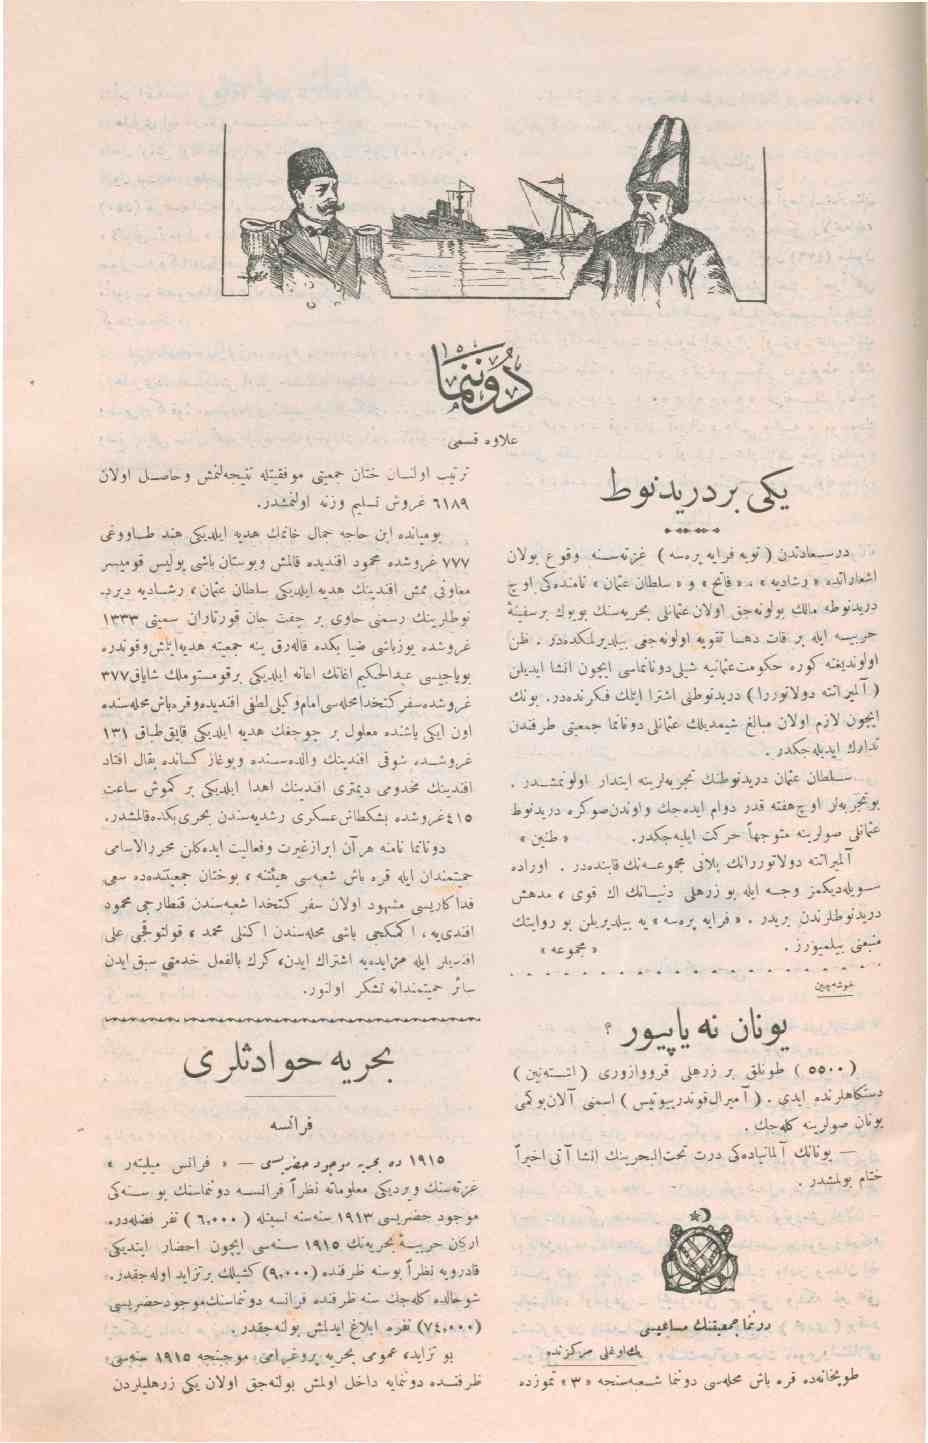 دوننما
علاوه قسمی
یکی بر دریدنوط
درسعادتدن ( نویه فرایه پره‌سه ) غزته‌سنه وقوع بولان
اشعاراتده « رشادیه » ، « فاتح » و « سلطان عثمان » نامنده‌کی اوچ
دریدنوطه مالک بولونه‌جق اولان عثمانلی بحریه‌سنك بویوك بر سفینهٔ
حربیه ایله بر قات دها تقویه اولونه‌جغی بیلدیرلمکده‌در . ظن
اولوندیغنه کوره حکومت عثمانیه شیلی دونانماسی ایچون انشا ایدیلن
( آلمیرانته دولاتوررا ) دریدنوطنی اشترا ایتمك فکرنده‌در. بونك
ایچون لازم اولان مبالغ شیمدیلك عثمانلی دونانما جمعیتی طرفندن
تدارك ایدیله‌جکدر .
سلطان عثمان دریدنوطنك تجربه‌لرینه ابتدار اولونمشدر .
بوتجربه‌لر اوچ هفته قدر دوام ایده‌جك واوندن‌صوکره دریدنوط
عثمانلی صولرینه متوجهاً حرکت ایلیه‌جکدر. « طنین »
آلمیرانته دولاتوررانك پلانی مجموعه‌نك قابنده‌در . اوراده
سویله‌دیکمز وجه ایله بو زرهلی دنیانك اك قوی ، مدهش
دریدنوطلرندن بریدر . « فرایه پره‌سه » یه بیلدیریلن بو روایتك
منبعنی بیلمیورز . « مجموعه »
خوشه‌چین
یونان نه یاپیور ؟
( ٥٥٠٠ ) طونلق بر زرهلی قرووازوری ( اشته‌تین )
دستکاهلرنده ایدی . ( آمیرال قوندریوتیس ) اسمنی آلان بوکمی
یونان صولرینه کله‌جك .
— یونانك آلمانیاده‌کی درت تحت‌البحرینك انشا آتی اخیراً
ختام بولمشدر .
دوننما جمعیتنك مساعیسی
بك‌اوغلی مرکزنده
طوپخانه‌ده قره باش محله‌سی دوننما شعبه‌سنجه « ٣ » تموزده
ترتیب اولنان ختان جمعیتی موفقیتله نتیجه‌لنمش وحاصل اولان
٦١٨٩ غروش تسلیم وزنه اولنمشدر.
بومیانده ابن حاجه جمال خانمك هدیه ایلدیکی هند طاووغی
٧٧٧ غروشده محمود افندیده قالمش وبوستان باشی پولیس قومیسر
معاونی ممش افندینك هدیه ایلدیکی سلطان عثمان ، رشادیه درید
نوطلرینك رسمنی حاوی بر چفت جان قورتاران سمیتی ١٣٣٣
غروشده یوزباشی ضیا بکده قاله‌رق ینه جمعیته هدیه‌ایتمش‌وقوندره
بویاجیسی عبدالحکیم اغانك اعانه ایلدیکی برقومستوملك شایاق٣٧٧
غروشده‌سفر کتخدامحله‌سی‌امام‌وکیلی‌لطفی‌افندیده‌وقره‌باش‌محله‌سنده
اون ایکی یاشنده معلول بر چوجغك هدیه ایلدیکی قایق‌طباق ١٣١
غروشده شوقی افندینك والده‌سنده وبوغاز کسانده بقال افتاد
افندینك مخدومی دیمتری افندینك اهدا ایلدیکی بر کموش ساعت
٤١٥غروشده بشکطاش‌عسکری رشدیه‌سندن بحری‌بکده‌قالمشدر.
دونانما نامنه هرآن ابراز غیرت وفعالیت ایده‌کلن محررالاسامی
حمیتمندان ایله قره باش شعبه‌سی هیئتنه ، بوختان جمعیتنده‌ده سعی
فداکاریسی مشهود اولان سفر کتخدا شعبه‌سندن قنطارجی محمود
افندی‌یه ، اکمکجی باشی محله‌سندن اکنلی محمد ، قولتوقجی علی
افندیلر ایله مزایده‌یه اشتراك ایدن، کرك بالفعل خدمتی سبق ایدن
سائر حمیتمندانه تشکر اولنور.
بحریه حوادثلری
فرانسه
١٩١٥ ده بحریه موجود حضریسی — « فرانس میلیتر »
غزته‌سنك ویردیکی معلوماته نظراً فرانسه دوننماسنك بو سنه‌کی
موجود حضریسی ١٩١٣ سنه‌سنه نسبتله ( ٦,٠٠٠ ) نفر فضله‌در.
ارکان حربیهٔ بحریه‌نك ١٩١٥ سنه‌سی ایچون احضار ایتدیکی
قادرویه نظراً بوسنه ظرفنده (٩,٠٠٠) کشیلك برتزاید اوله‌جقدر.
شوحالده کله‌جك سنه ظرفنده فرانسه دوننماسنك‌موجودحضریسی
(٧٤,٠٠٠) نفره ابلاغ ایدلمش بولنه‌جقدر .
بو تزاید، عمومی بحریه پروغرامی موجبنجه ١٩١٥ سنه‌سی
ظرفنده دوننمایه داخل اولمش بولنه‌جق اولان یکی زرهلیلردن